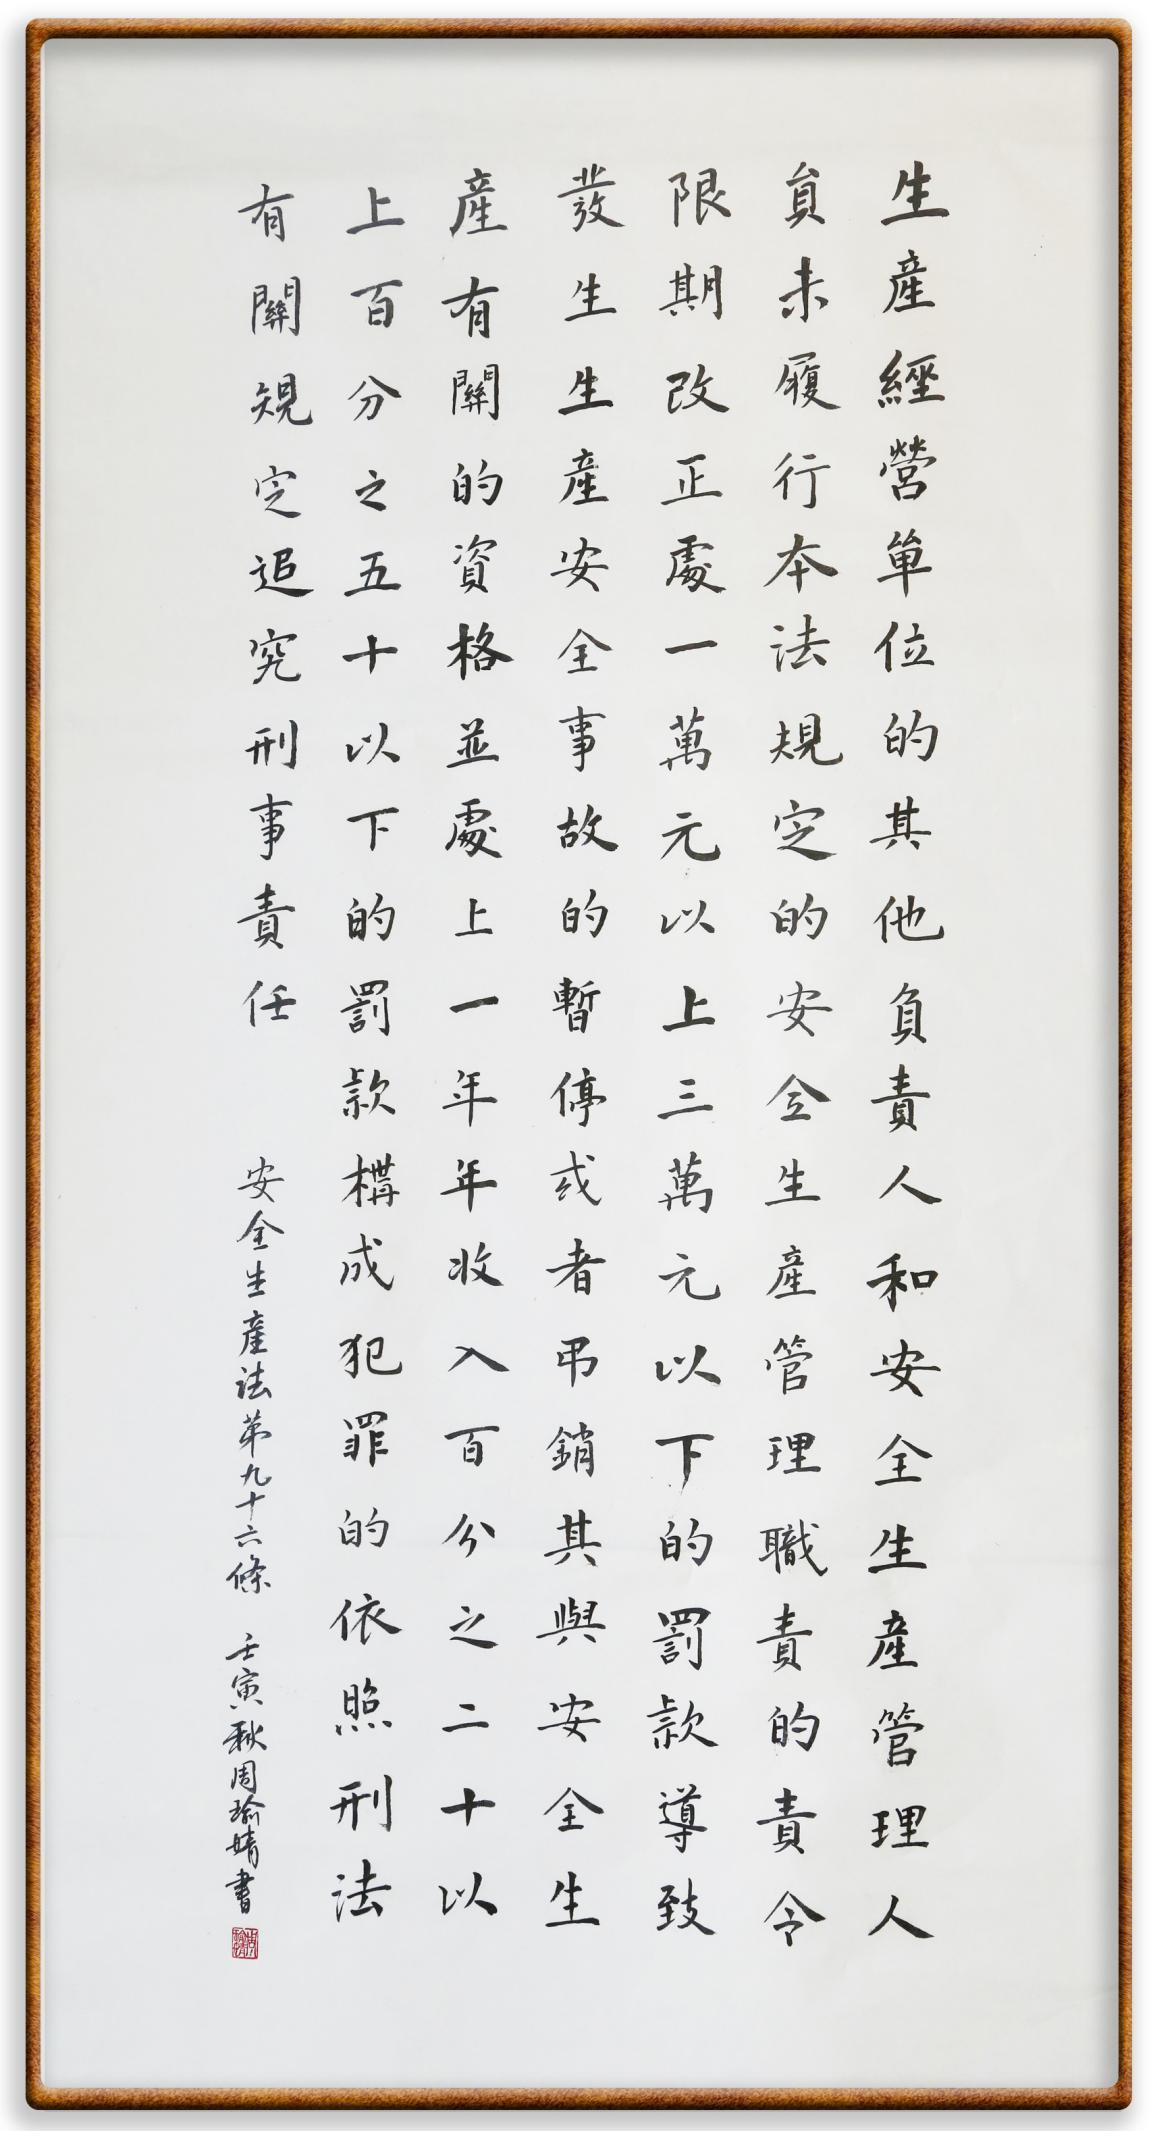 生產經營單位的其他負責人和安全生產管理人
員未履行本法規定的安全生產管理職責的責令
限期改正處一萬元以上三萬元以下的罰款導致
發生生產安全事故的暫停或者弔銷其與安全生
產有關的資格並處上一年年收入百分之二十以
上百分之五十以下的罰款構成犯罪的依照刑法
有關規定追究刑事責任
安全生產法第九十六條 壬寅秋周瑜婧書